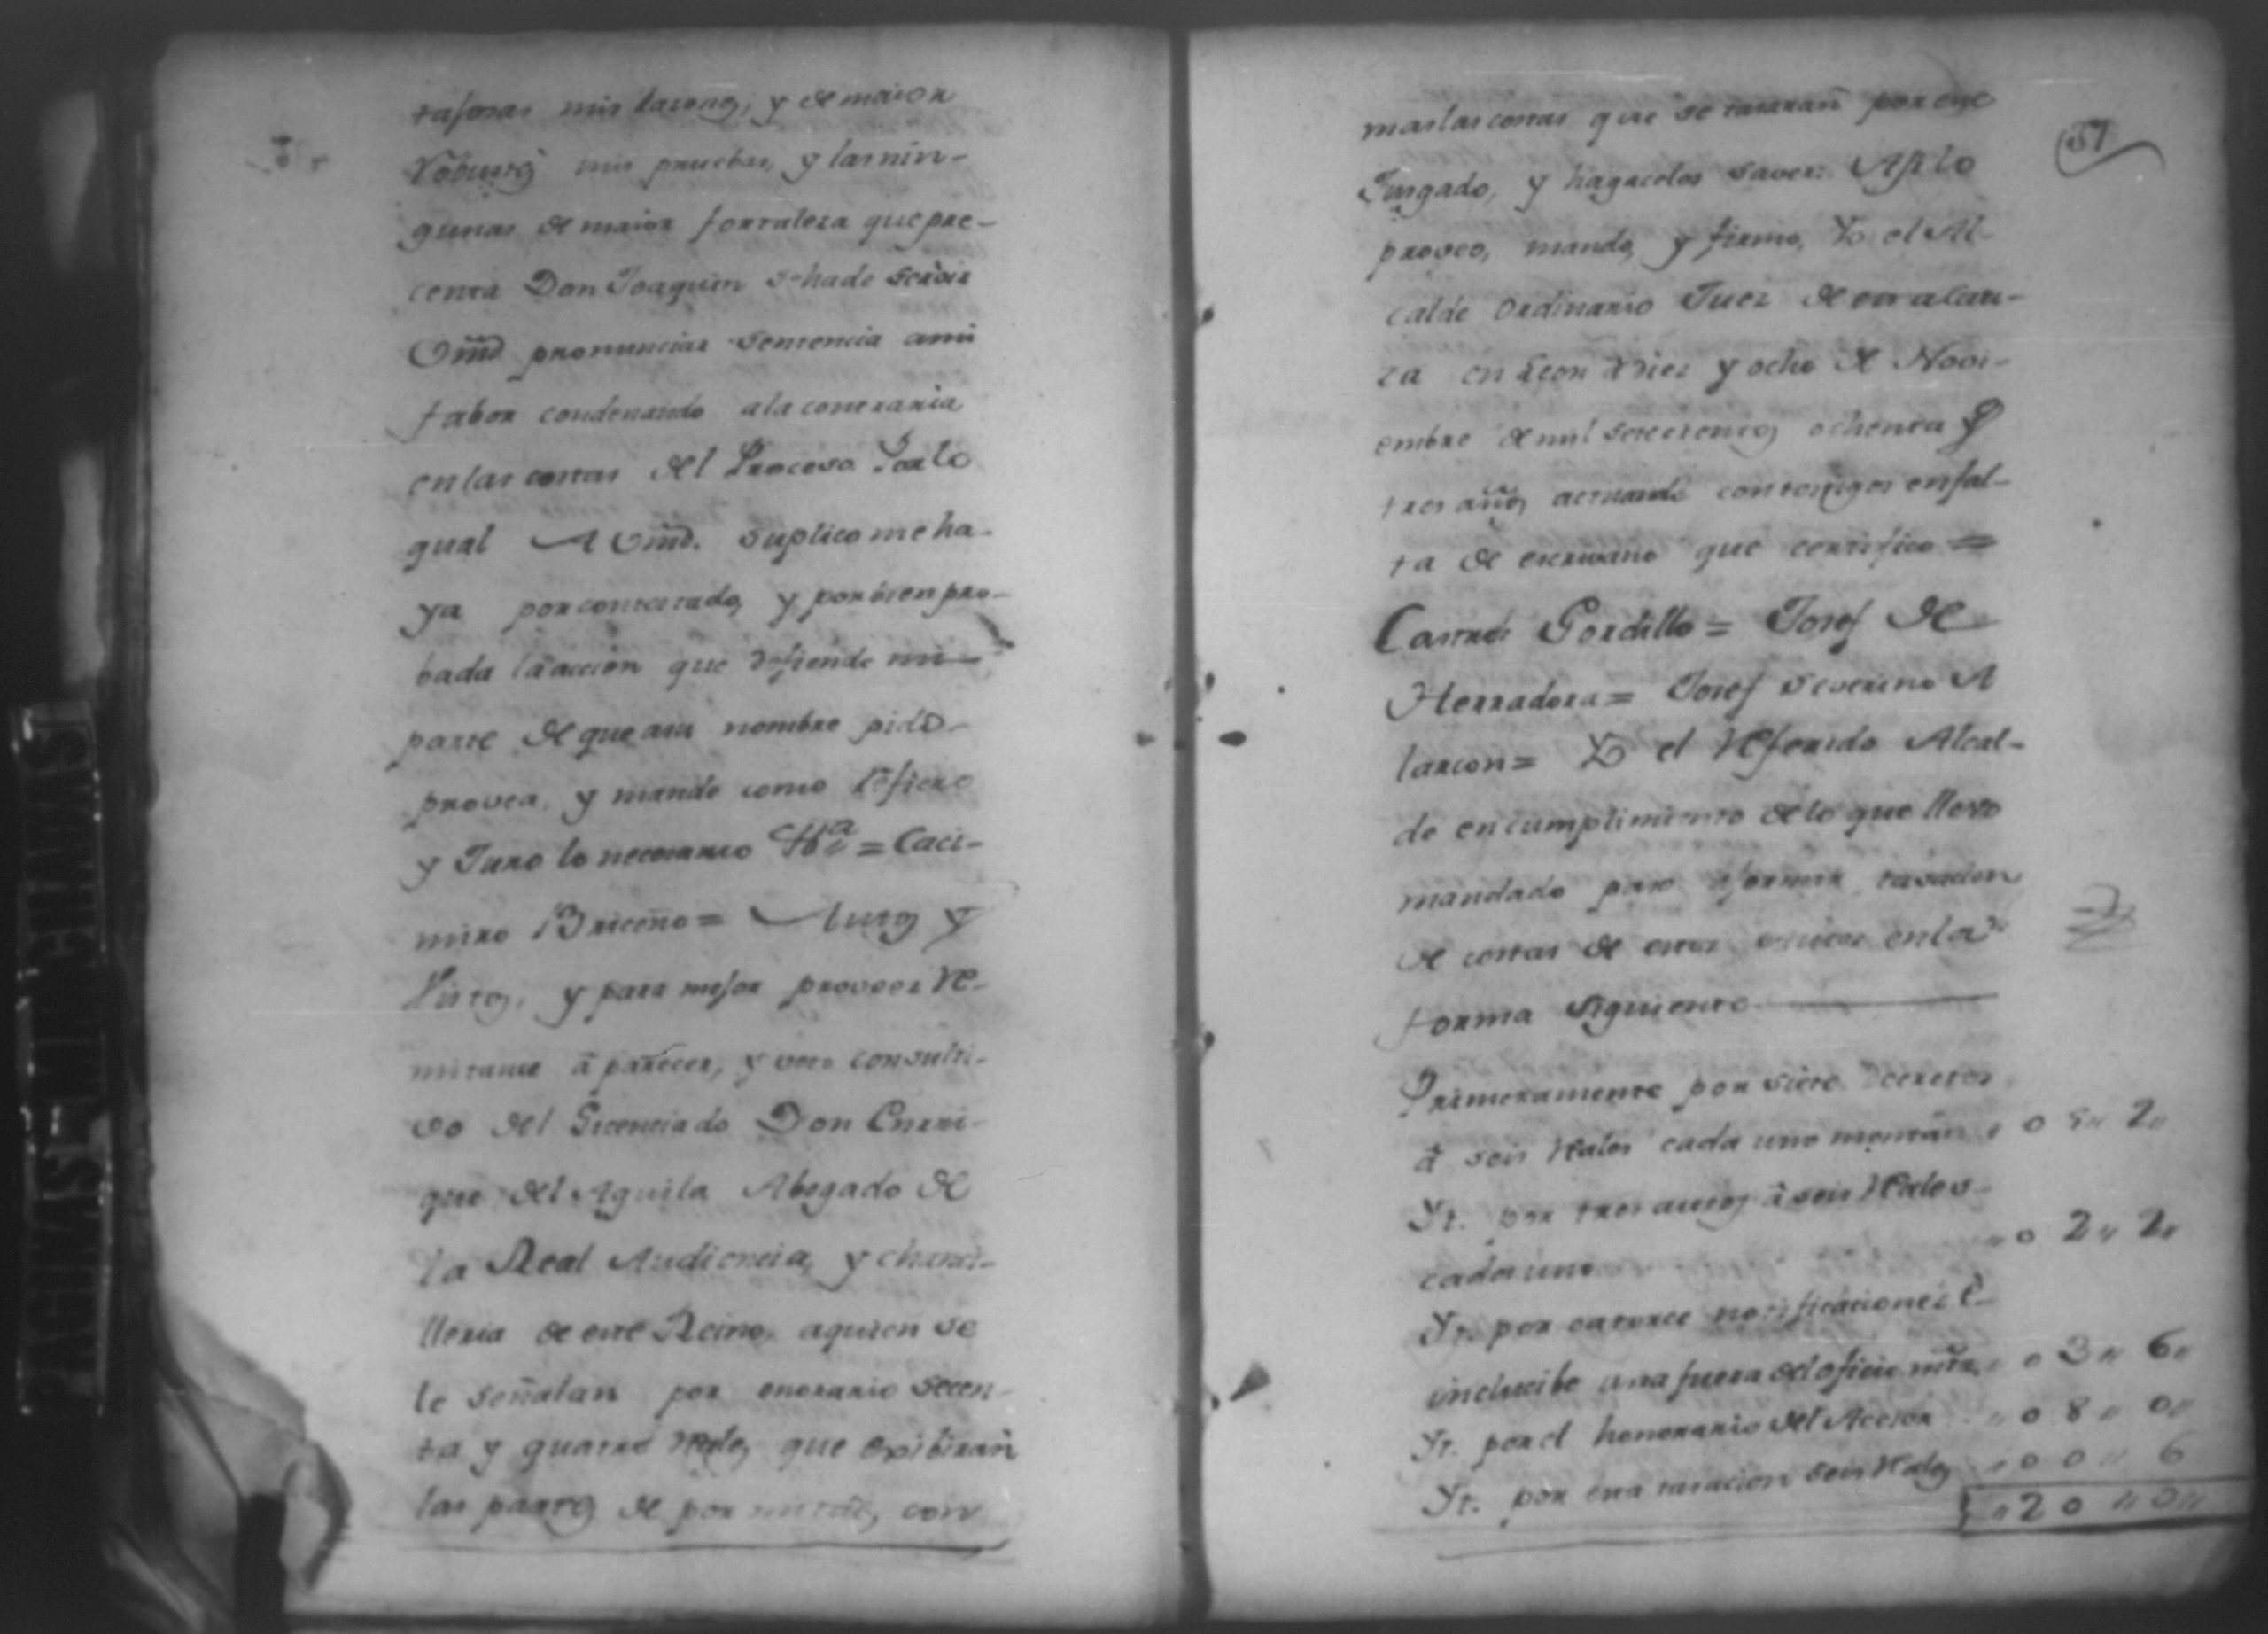 tajosas mis razong, y de maior
Robustg mis pruebas, y las nin-
gunas de maior fortaleza que pre-
centa Don Joaquin se ha de servir
Vmd pronunciar sentencia a mi
fabor condenando a la contraria
en las costas del Proceso Por lo
qual A Vmd. suplico me ha-
ya por contextado, y por bien pro-
bada la accion que defiende mi
parte de que a su nombre pido
provea, y mande como refiero
y Juro lo necesario &a = Caci-
miro Briceño = Autg y
Vistg, y para mejor proveer Re-
mitance â parecer, y voto consulti-
vo del Licenciado Don Enrri-
que del Aguila Abogado de
la Real Audiencia, y chanci-
lleria de este Reino, a quien se
le señalan por onorario secen-
ta y quatro Rls, que exibiran
las partg de por mitad, con
57
mas las costas que se tasaran por este
Jusgado, y hagacelos saver: Assi lo
proveo, mando, y firmo, Yo el Al-
calde Ordinario Juez de esta cau-
za en Leon â diez y ocho de Novi-
embre de mil setecientos ochenta y
tres añg actuando con testigos en fal-
ta de escrivano que certifico =
Castro Gordillo = Josef de
Herradora = Josef Severino A
larcon = Yo el Referido Alcal-
de en cumplimiento de lo que llevo
mandado paso a formar tasacion
de costas de estos autos en la
forma siguiente
Primeramente por siete Decretos
â seis Reales cada uno montan " 0 5 " 2 "
Yt. por tres autos â seis Reales
cada uno " 0 2 " 2 "
Yt. por catorce notificaciones
inclucibe una fuera del oficio mtn " 0 3 " 6 "
Yt. por el honorario del Acesor " 0 8 " 0 "
Yt. por esta tasacion seis Rales " 0 0 " 6
" 2 0 " 0 "